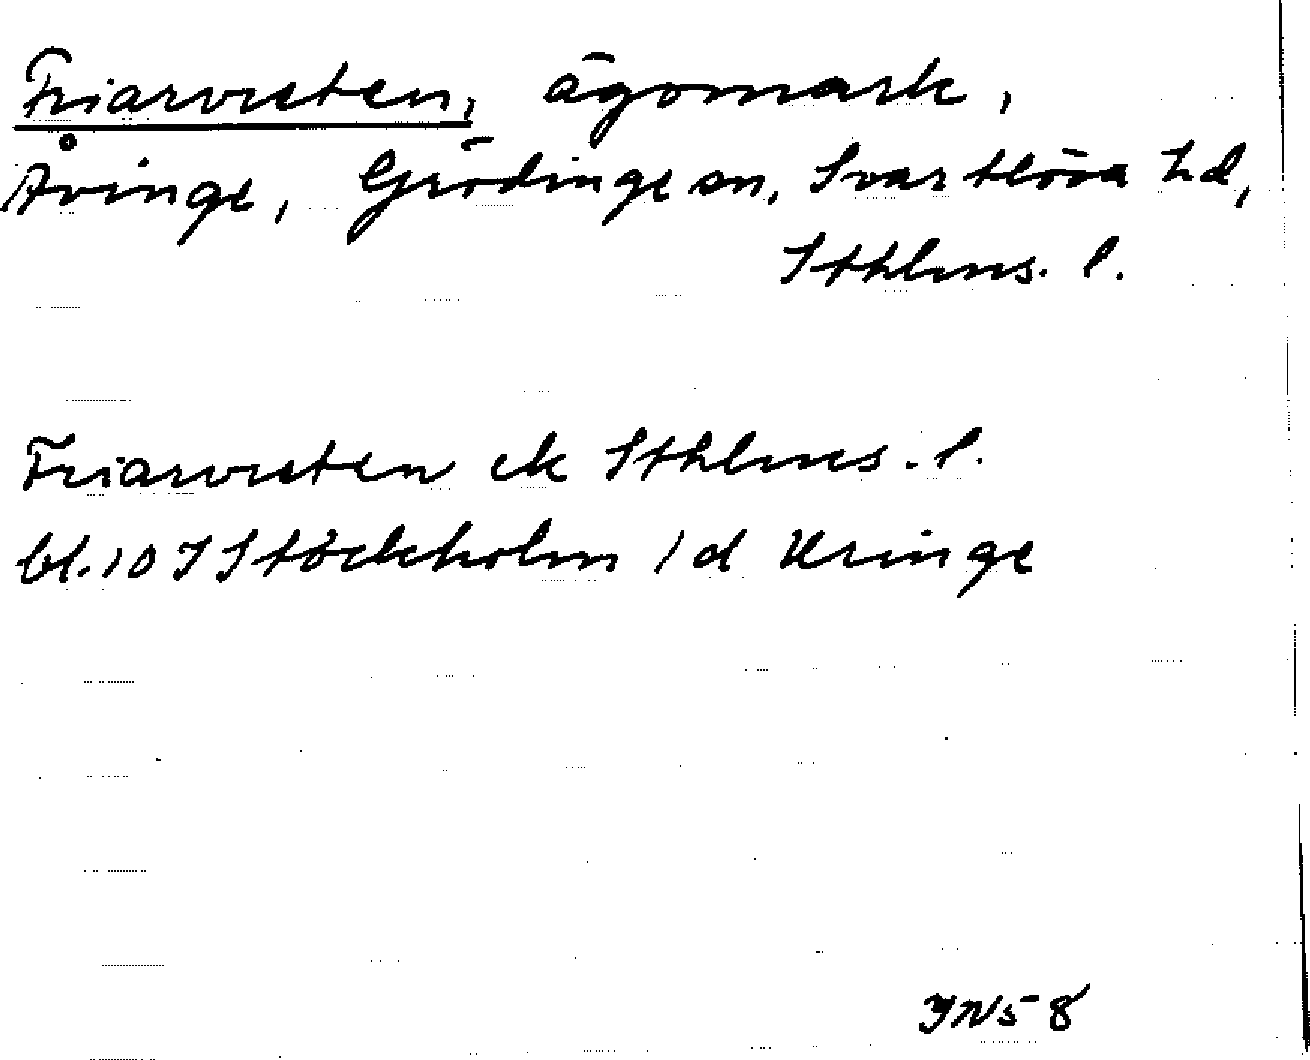 Friarvreten, ägomark,
Åvinge, Grödinge sn, Svartlösa hd,
Sthlms. l.
Friarvreten ek Sthlms. l.
bl. 10 I Stockholm 1 d Uringe
INS 8